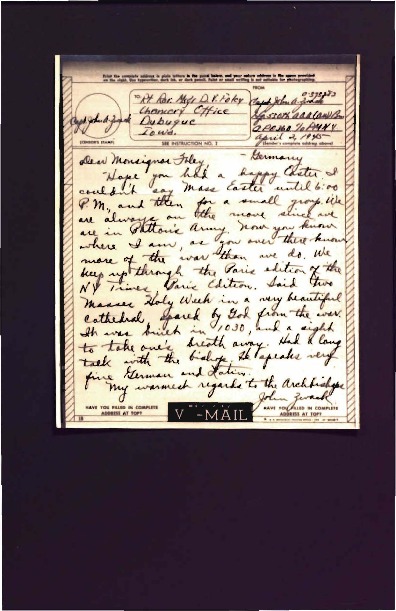 Print the complete address in plain letters in the panel below, and your return address in the space provided
on the right. Use typewriter, dark ink, or dark pencil. Faint or small writing is not suitable for photographing.
TO
Rt Rev. Msgr D. P. Foley
Chancery Office
Dubuque
Iowa.
FROM
Capt John A Zwack
April 2, 1945
(SENDER'S STAMP)
SEE INSTRUCTION NO. 2
(Sender's complete address above)
Dear Monsignor Foley, - Germany
Hope you had a happy Easter. I
couldn't say Mass Easter until 6:00
P.M., and then for a small group. We
are always on the move since we
are in Patton's Army. Now you know
where I am, as you over there know
more of the war than we do. We
keep up through the Paris edition of the
NY Times, Paris Edition. Said two
Masses Holy Week in a very beautiful
cathedral, spared by God from the war.
It was built in 1030, and a sight
to take one's breath away. Had a long
talk with the bishop. He speaks very
fine German and Latin.
My warmest regards to the Archbishop
John Zwack
HAVE YOU FILLED IN COMPLETE
ADDRESS AT TOP?
V - MAIL
HAVE YOU FILLED IN COMPLETE
ADDRESS AT TOP?